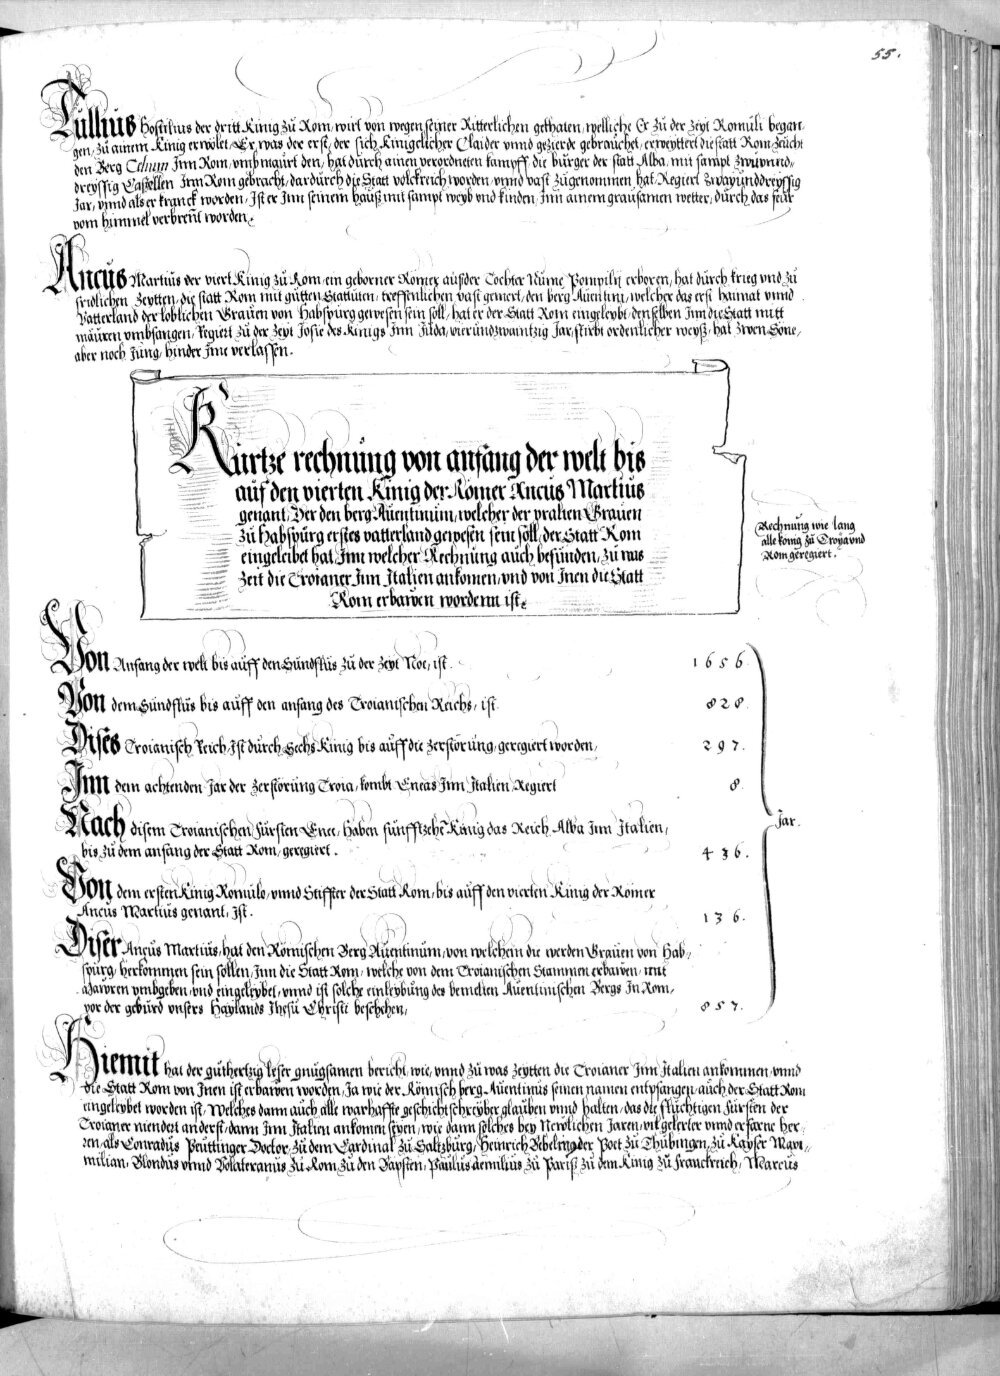 55.
Tullius Hostilius der dritt Künig zu Rom, wirt von wegen seiner Ritterlichen gethaten, welliche Er zu der zeyt Romuli began-
gen, zu ainem Künig erwölet, Er was der erst, der sich Künigclicher Claider vnnd gezierde gebrauchet, erweyttert die statt Rom, zeücht
den Berg Celium Inn Rom, vmbmaürt den, hat durch ainen verordneten kampff, die bürger der statt Alba, mit sampt zwüvnnd-
dreyssig Castellen Inn Rom gebracht, dardurch die Statt volckreich worden, vnnd vast zugenomen hat, Regiert zwayunddreyssig
Jar, vnnd als er kranck worden, Ist er Inn seinem hauß mit sampt weyb vnd kinden, Inn ainem grausamen wetter, durch das feür
vom himmel verbrent worden.
Ancus Martius der viert Künig zu Rom, ein geborner Römer, aus der Tochter Nume Pompilij erboren, hat durch krieg vnd zu
fridlichen zeytten, die statt Rom mit gutten Statuten, treffenlichen vast gemert, den berg Auentini, welcher das erst haimat vnnd
Vatterland der löblichen Grauen von Habspurg gewesen sein soll, hat er der Statt Rom eingeleybt, denselben Inn die Statt mitt
mauren vmbfangen, Regiert zu der zeyt Josie des Künigs Inn Juda, vierundzwaintzig Jar, stirbt ordenlicher weyß, hat zwen Söne,
aber noch Jung, hinder Ime verlassen.
Kurtze rechnung von anfang der welt bis
auf den vierten Künig der Römer Ancus Martius
genant, Der den berg Auentinum, welcher der vralten Grauen
zu Habspurg erstes vatterland gewesen sein soll, der Statt Rom
eingeleibet hat, Inn welcher Rechnung auch befunden, zu was
zeit die Troianer Inn Italien ankomen, vnd von Inen die Statt
Rom erbawen wordenn ist.
Rechnung wie lang
alle König zu Troya vnd
Rom geregiert.
Von Anfang der welt bis auff den Sündflus zu der zeyt Noe, ist. 1656.
Von dem Sündflus bis auff den anfang des Troianischen Reichs, ist 828.
Dises Troianisch Reich, Ist durch Sechs Künig bis auff die zerstörung, geregiert worden, 297.
Inn dem achtenden Jar der zerstörung Troia, kombt Eneas Inn Italien, Regiert 8.
Nach disem Troianischen Fürsten Enee, haben fünfftzehē Künig das Reich Alba Inn Italien,
bis zu dem anfang der Statt Rom, geregiert. 436.
Jar.
Von dem ersten Künig Romulo, vnnd Stiffter der Statt Rom, bis auff den vierten Künig der Römer
Ancus Martius genant, Ist. 136.
Diser Ancus Martius, hat den Römischen Berg Auentinum, von welchem die werden Grauen von Hab-
spurg, herkommen sein sollen, Inn die Statt Rom, welche von dem Troianischen Stammen erbawen, mit
Mawren vmbgeben, vnd eingeleybet, vnnd ist solche einleybung des bemelten Auentinischen Bergs In Rom,
vor der geburd vnsers Haylands Jhesu Christi beschehen, 857.
Hiemit hat der guthertzig leser gnugsamen bericht, wie, vnnd zu was zeytten die Troianer Inn Italien ankommen, vnnd
die Statt Rom von Inen ist erbawen worden, Ja wie der Römisch berg Auentinus seinen namen entpfangen, auch der Statt Rom
eingeleybet worden ist, Welches dann auch alle warhaffte geschichtschreyber glauben vnnd halten, das die flüchtigen Fürsten der
Troianer niendert anderst, dann Inn Italien ankomen seyen, wie dann solches bey Newlichen Jaren, vil gelerter vnnd erfarne her-
ren, als Conradus Peuttinger Doctor, zu dem Cardinal zu Saltzburg, Heinrich Bebelius der Poet zu Thübingen, zu Kayser Maxi-
milian, Blondus vnnd Volateranus zu Rom, zu den Bapsten, Paulus Aemilius zu Pariß zu dem Künig zu Franckreich, Marcus